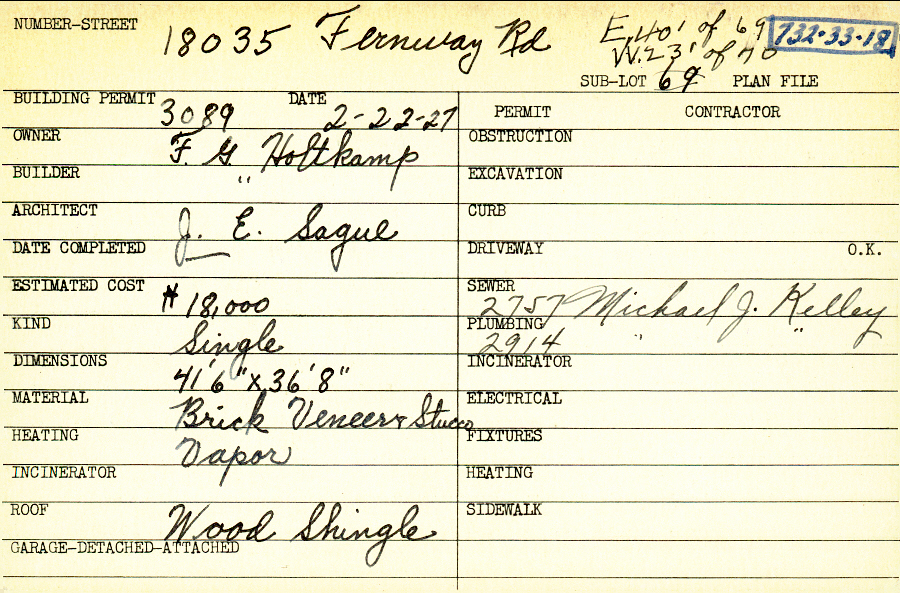 NUMBER-STREET 18035 Fernway Rd E.40' of 69 732-33-18
W.23' of 70
SUB-LOT 69 PLAN FILE
BUILDING PERMIT 3089 DATE 2-22-27 PERMIT CONTRACTOR
OWNER F. G. Holtkamp OBSTRUCTION
BUILDER " EXCAVATION
ARCHITECT J. E. Sague CURB
DATE COMPLETED DRIVEWAY O.K.
ESTIMATED COST $18,000 SEWER 2757 Michael J. Kelley
KIND Single PLUMBING 2914 " "
DIMENSIONS 41'6"x36'8" INCINERATOR
MATERIAL Brick Veneer & Stucco ELECTRICAL
HEATING Vapor FIXTURES
INCINERATOR HEATING
ROOF Wood Shingle SIDEWALK
GARAGE-DETACHED-ATTACHED